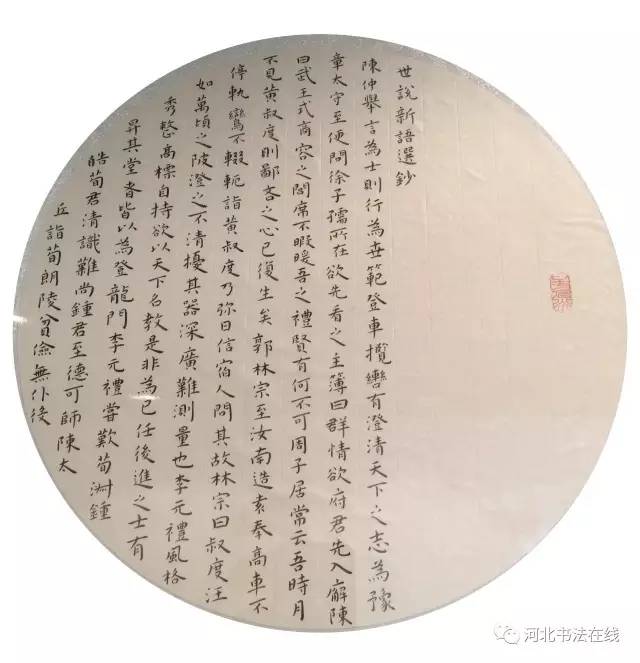 世說新語選鈔
陳仲舉言為士則行為世範登車攬轡有澄清天下之志為豫
章太守至便問徐子孺所在欲先看之主簿曰群情欲府君先入廨陳
曰武王式商容之閭席不暇暖吾之禮賢有何不可周子居常云吾時月
不見黃叔度則鄙吝之心已復生矣郭林宗至汝南造袁奉高車不
停軌鸞不輟軛詣黃叔度乃弥日信宿人問其故林宗曰叔度汪
如萬頃之陂澄之不清擾其器深廣難測量也李元禮風格
秀整高標自持欲以天下名教是非為己任後進之士有
昇其堂者皆以為登龍門李元禮嘗歎荀淑鍾
皓荀君清識難尚鍾君至德可師陳太
丘詣荀朗陵貧儉無仆役
河北书法在线